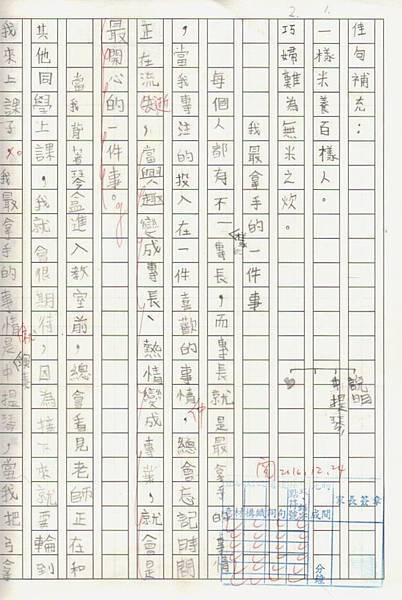 佳句補充：
1. 一樣米養百樣人。
2. 巧婦難為無米之炊。
我最拿手的一件事
每個人都有不一樣的專長，而專長就是最拿手的事情
，當我專注的投入在一件喜歡的事情中，總會忘記時間
正在流失逝，當興趣變成專長、熱情變成專業，就會是
最開心的一件事。
當我背著琴盒進入教室前，總會看見老師正在和
其他同學上課，我就會很期待，因為接下來就要輪到
我來上課了，我最拿手的事情就是演奏中提琴，當我把弓拿
說明
中提琴
2016.12.24
家長簽章
成間
分鐘